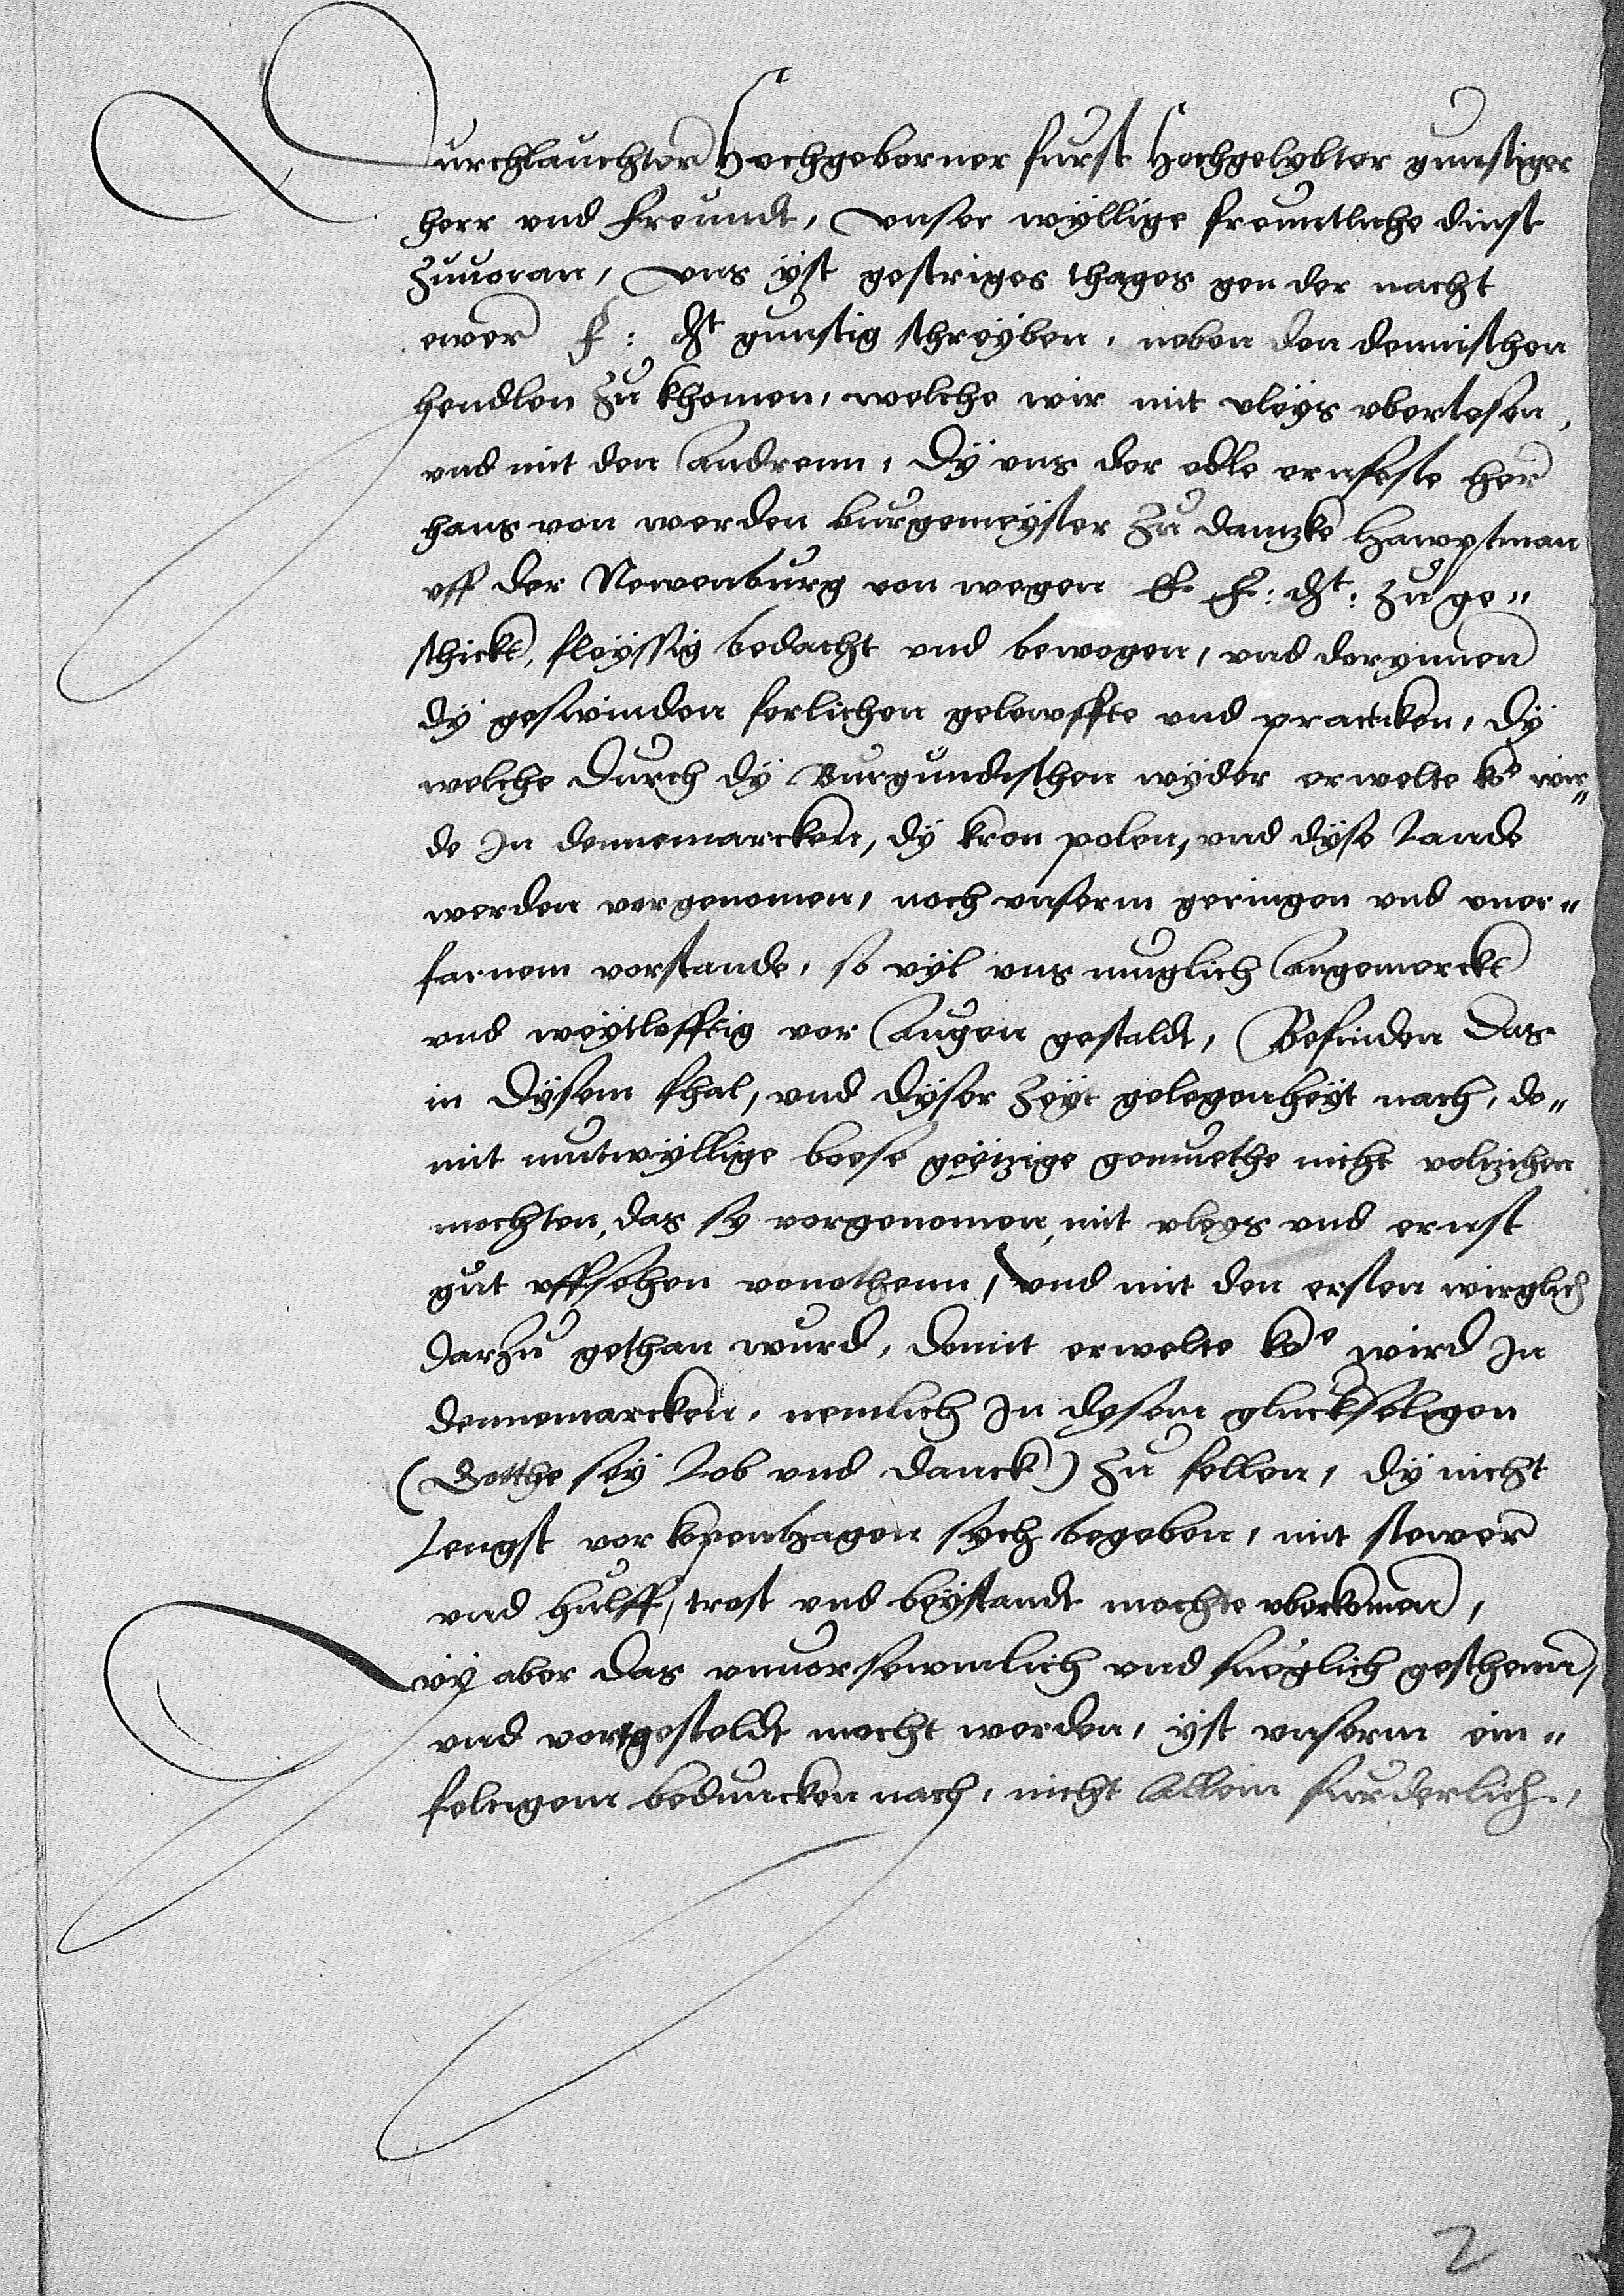 Durchlauchter Hochgeborner furst Hochgelybter gunstiger
herr vnd freundt, vnser wyllige freuntliche dinst
zuuoran, vns yst gestriges thages gen der nacht
ewer f: dt gunstig schreyben, neben den dennischen
hendlen zu khomen, welche wir mit vleys vberlesen,
vnd mit den Andrenn, dy vns der edle ernfeste her
hans von werden burgemeyster zu dantzke Hawptman
vff der Newenburg von wegen E. F: dt: zu ge„
schickt, fleyssig bedacht vnd bewogen, vnd dorynnen
dy geswinden ferlichen gelewffte vnd practicken, dy
welche durch dy Burgundischen wyder erwelte ko wir„
de In dennemarcken, dy kron polen, vnd dyse Lande
werden vorgenomen, noch vnserm geringen vnd vner„
farnem vorstande, so vyl vns muglich Angemerckt
vnd weytlefftig vor Augen gestaldt, Befinden das
in dysem fhal, vnd dyser zeyt gelegenheyt nach, do„
mit mutwyllige boese geyizige gemuethe nicht volzihen
mochten, das sy vorgenomen, mit vleys vnd ernst
gut vffsehen vonothenn, vnd mit den ersten wirglich
darzu gethan wurd, domit erwelte koe wird In
dennemarcken, nemlich In dysem gluckseligen
(Gotthe sey Lob vnd danck) zu fellen, dy nicht
Lengst vor kopenhagen sych begeben, mit stewer
vnd hulff, trost vnd beystandt mochte vberkomen,
wy aber das vnuorsewmlich vnd fueglich geschenn,
vnd vortgesteldt mocht werden, yst vnserm ein„
feltigem beduncken nach, nicht Allein furderlich,
2